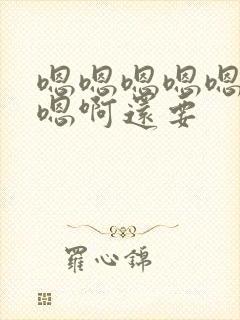 嗯嗯嗯嗯嗯
嗯啊還要
羅心錦